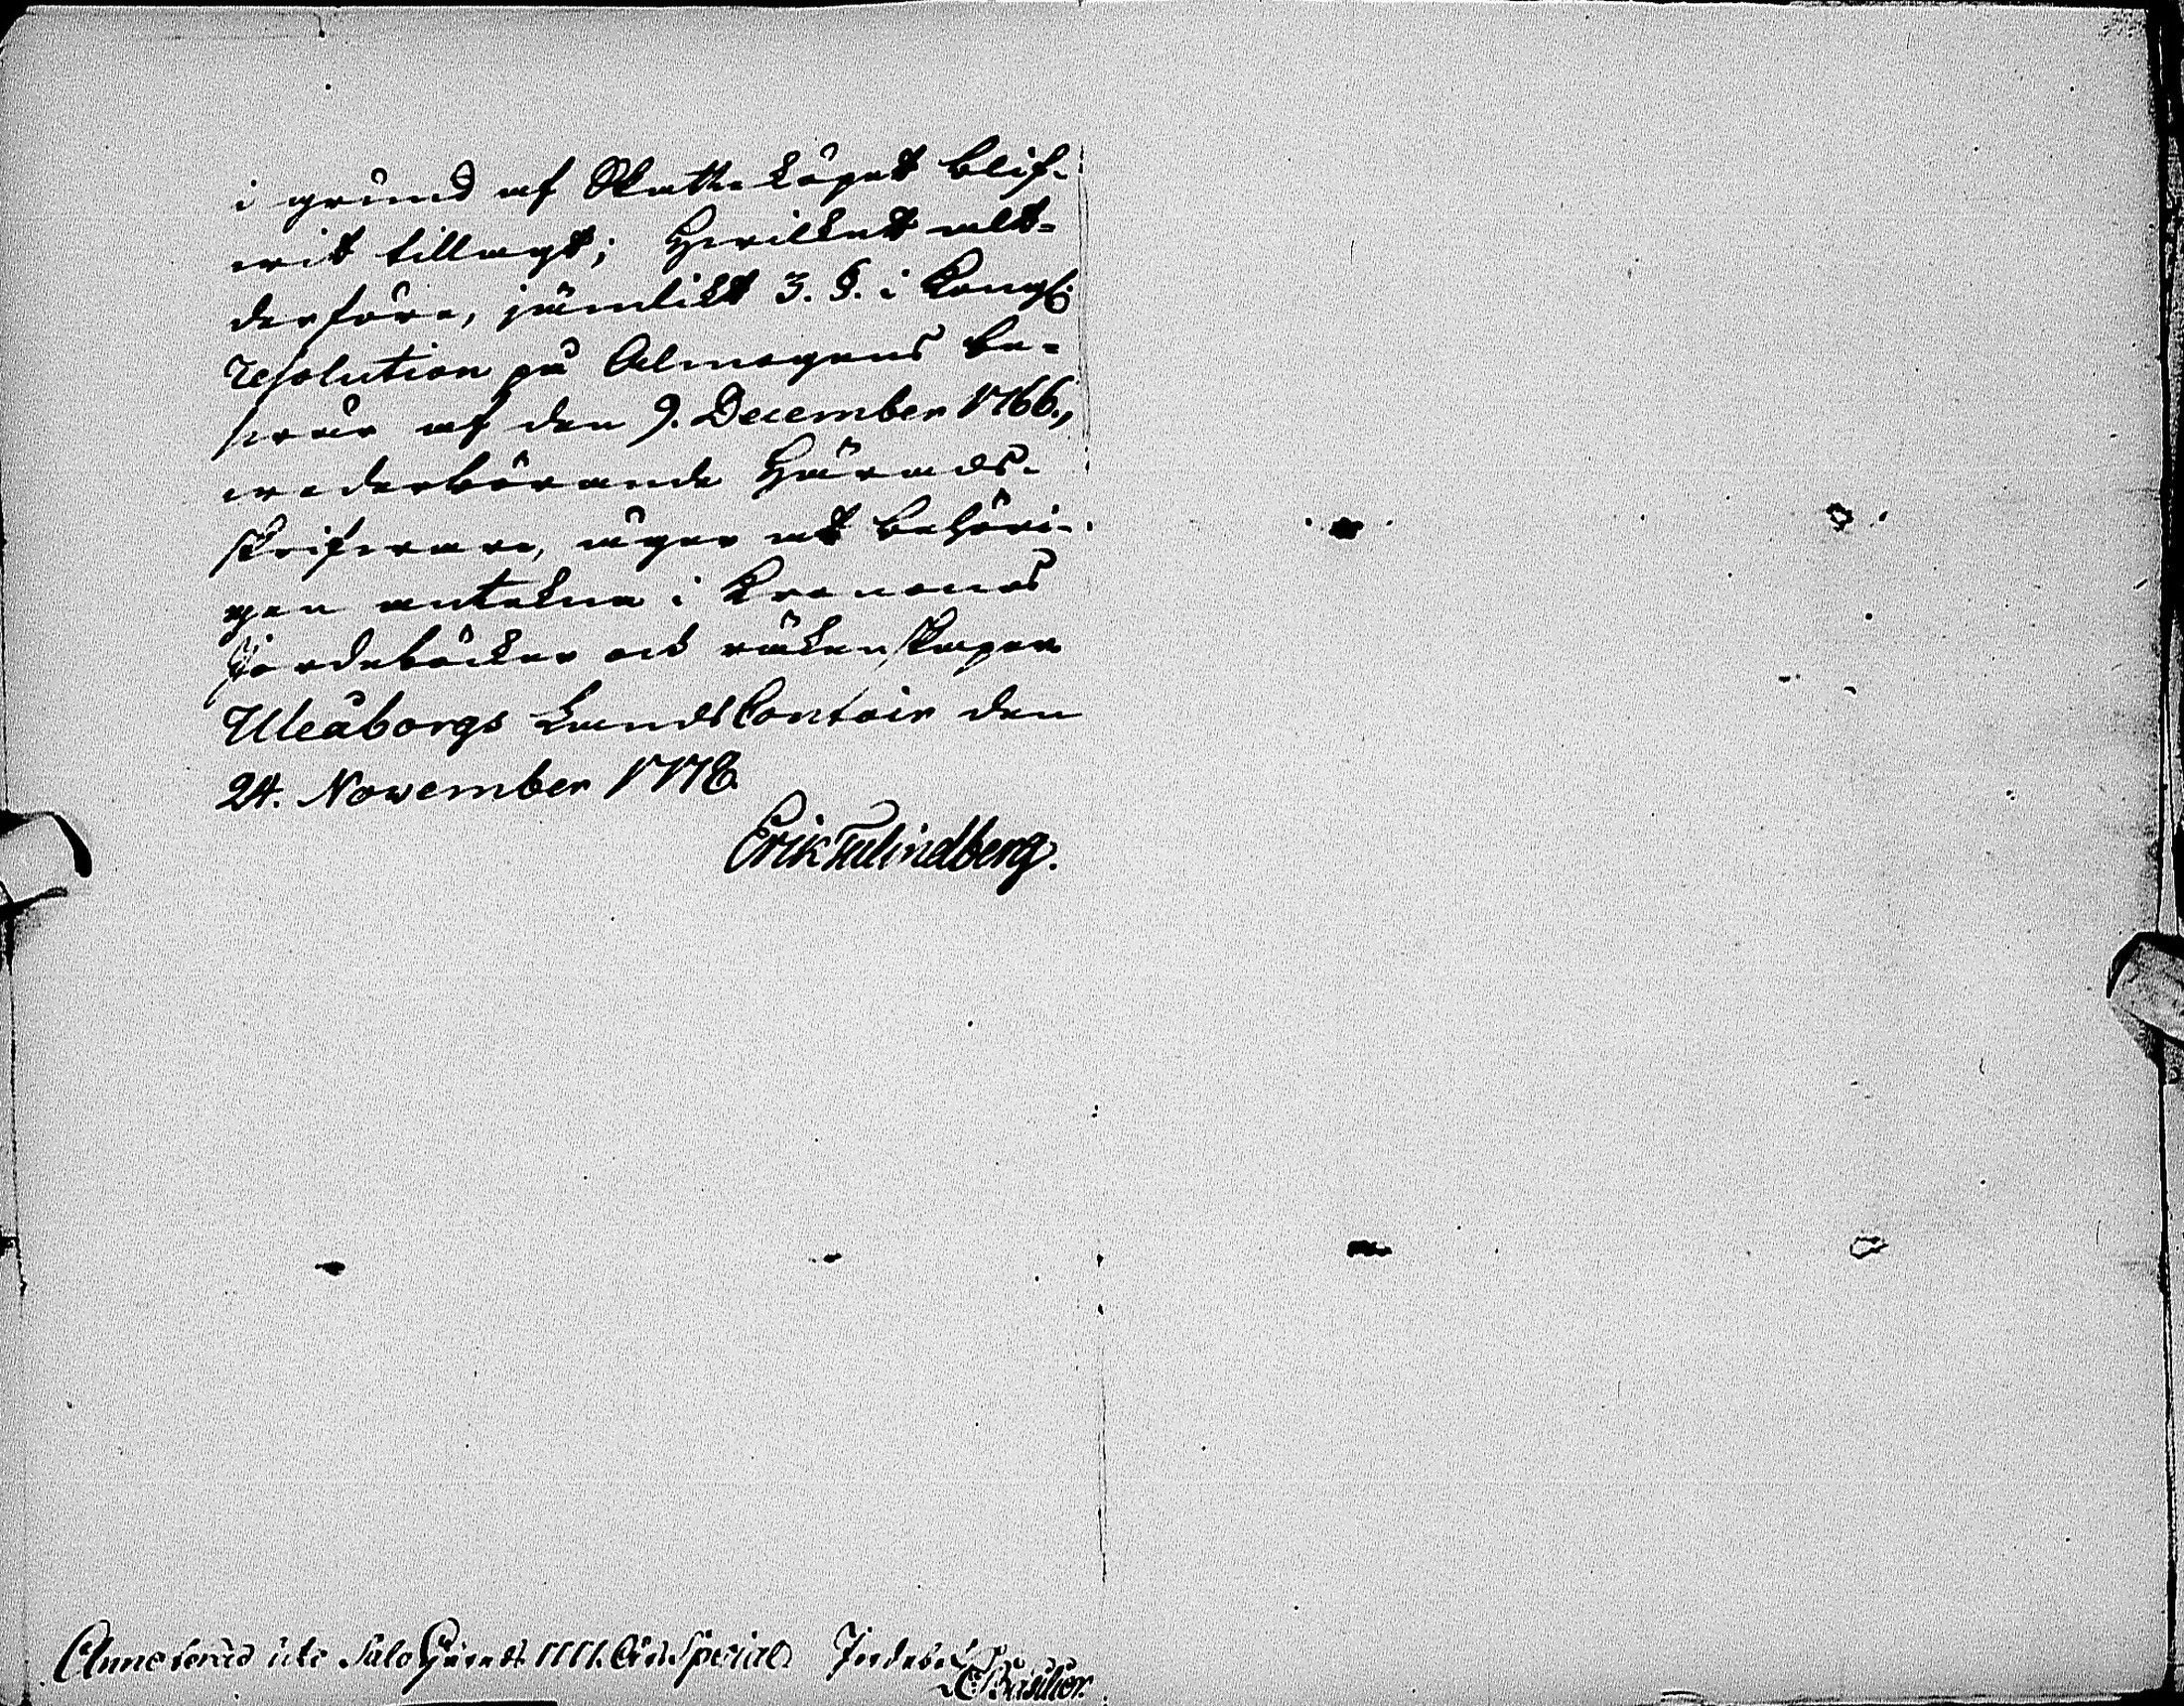 i grund af Skatteköpet blif-
wit tillagt; Hwilket alt=
derföre, jämlikt 3. §. i Kongl.
resolution på Almogens be=
swär af den 9. December 1766.,
wederbörande Härads-
skrifware, äger at behöri-
gen antekna i Kronones
Jordeböcker och räkenskaper
Uleåborgs LandsContoir den
24. November 1778.
Erik Tulindberg.
Annoterad uti Salo Härads Års Special Jordebok